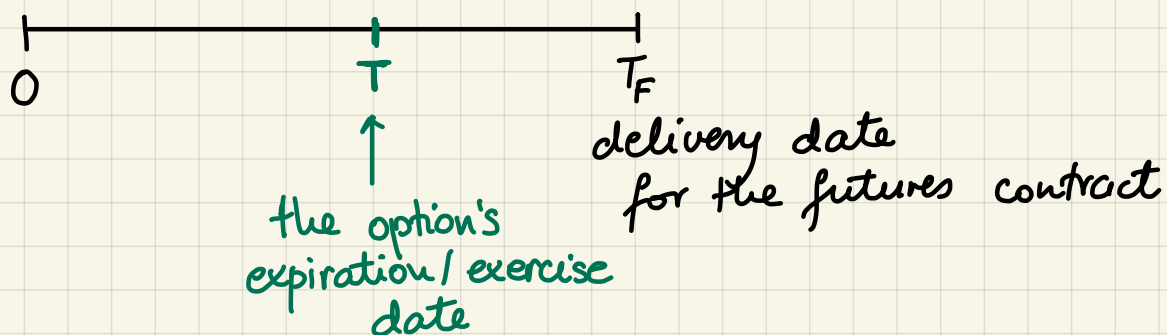 0
T
T_F
delivery date
for the futures contract
the option's
expiration/exercise
date